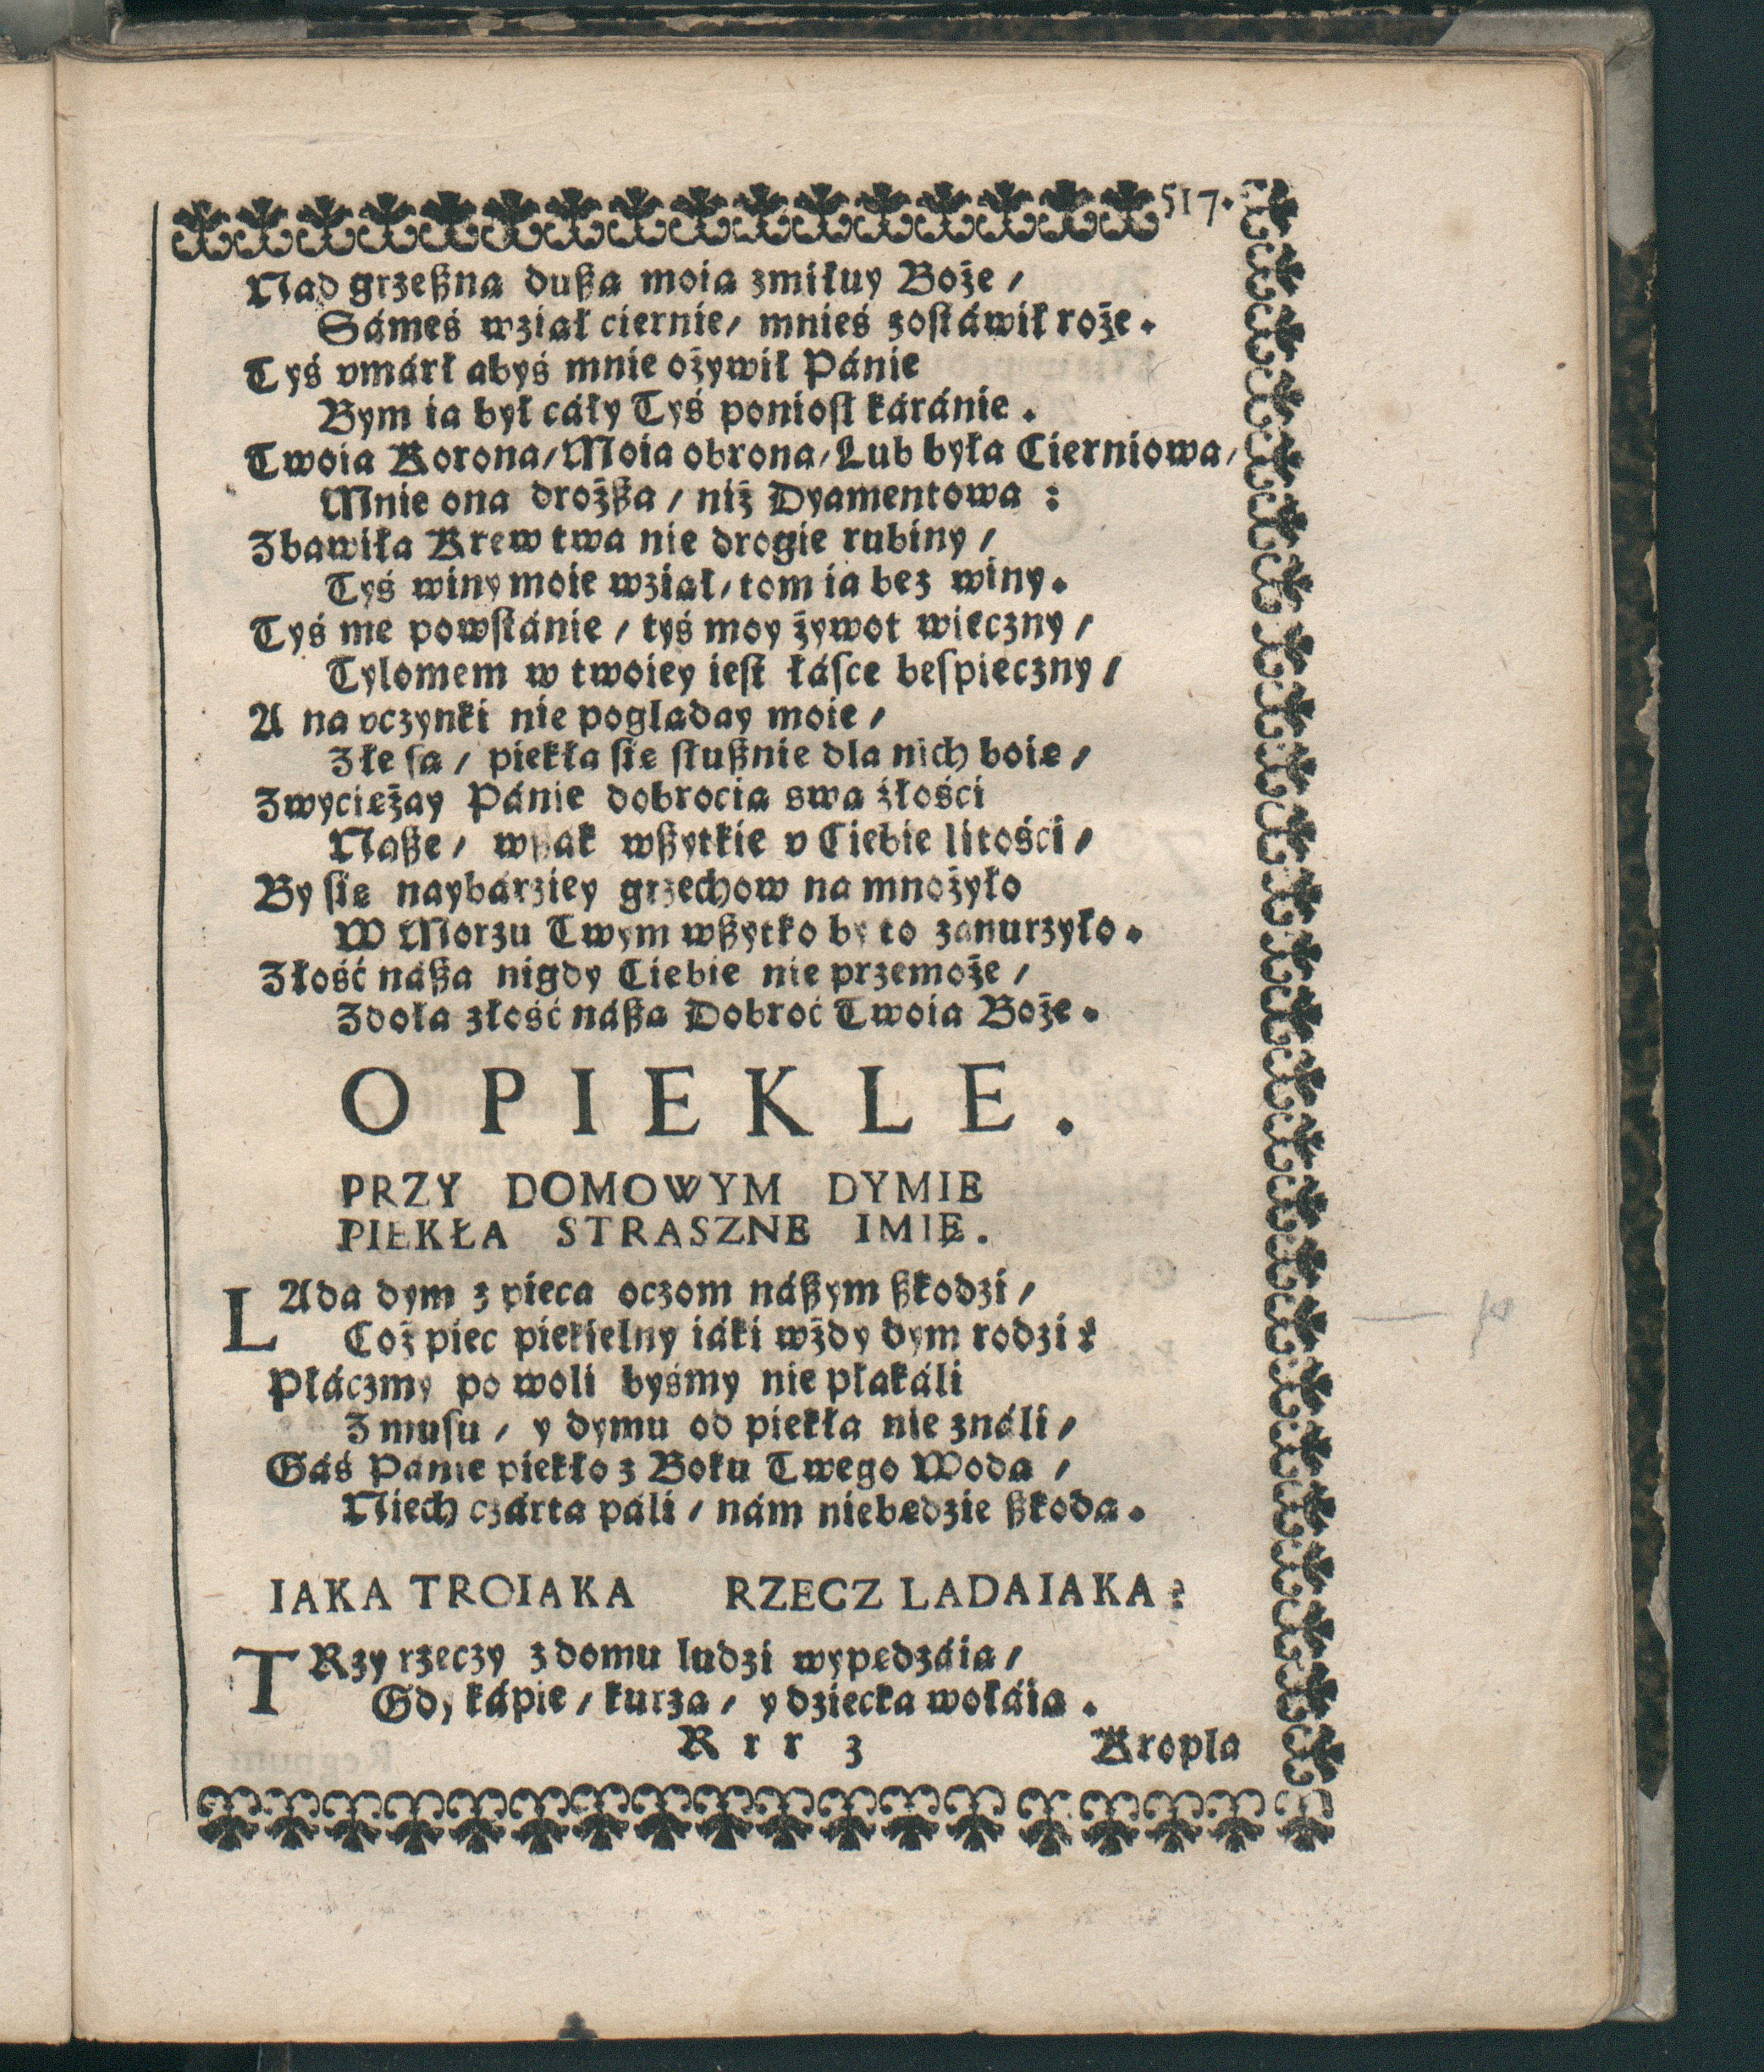 517.
Nad grzeßna dußa moia zmiłuy Boże /
Sámeś wział ciernie / mnieś zostáwił roże.
Tyś vmárł abyś mnie ożywił Pánie
Bym ia był cáły Tyś poniosł káránie.
Twoia Korona / Moia obrona / Lub była Cierniowa /
Mnie ona drożßa / niż Dyamentowa :
Zbawiła Krew twa nie drogie rubiny /
Tyś winy moie wział / tom ia bez winy.
Tyś me powstánie / tyś moy żywot wieczny /
Tylomem w twoiey iest łásce bespieczny /
A na vczynki nie pogladay moie /
Złe sa / piekła sie słußnie dla nich boie /
Zwycieżay Pánie dobrocia swa źłości
Naße / wßak wßytkie v Ciebie litości /
By sie naybárziey grzechow na mnożyło
W Morzu Twym wßytko by to zanurzyło.
Złość náßa nigdy Ciebie nie przemoże /
Zdoła złość náßa Dobroć Twoia Boże.
O PIEKLE.
PRZY DOMOWYM DYMIE
PIEKŁA STRASZNE IMIĘ.
LAda dym z pieca oczom náßym ßkodzi /
Coż piec piekielny iáki wżdy dym rodzi ?
Płáczmy po woli byśmy nie płakáli
Z musu / y dymu od piekła nieználi /
Gáś Panie piekło z Boku Twego Woda /
Niech czárta páli / nám niebedzie ßkoda.
IAKA TROIAKA RZECZ LADAIAKA ?
TRzy rzeczy z domu ludzi wypedzáia /
Gdy kápie / kurza / y dziecka wołáia.
Rrr 3 Kropla